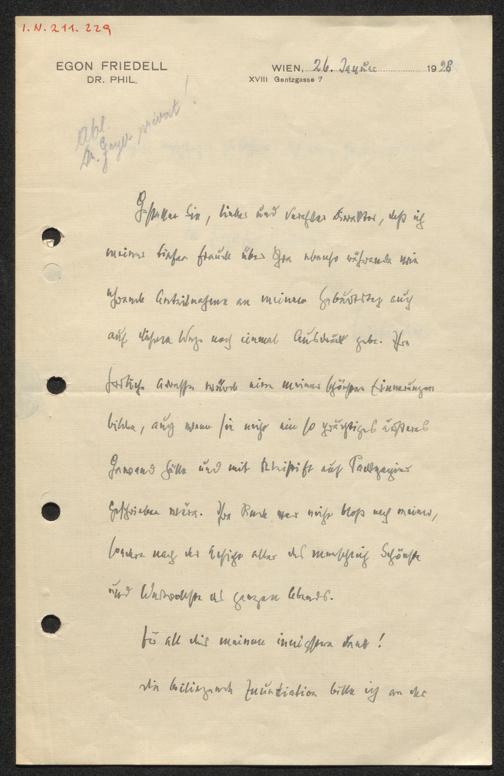 I.N. 211.229
EGON FRIEDELL
DR. PHIL.
WIEN, 26. Januar 1928
XVIII Gentzgasse 7
Abl.
Dr. Geyer privat!
Gestatten Sie, lieber und verehrter Direktor, daß ich
meiner tiefen Freude über Ihre ebenso rührende wie
ehrende Anteilnahme an meinem Geburtstag auch
auf diesem Wege noch einmal Ausdruck gebe. Ihre
herrliche Adresse würde eine meiner schönsten Erinnerungen
bilden, auch wenn sie nicht ein so prächtiges äußeres
Gewand hätte und mit Bleistift auf Packpapier
geschrieben wäre. Ihre Rede war nicht bloß nach meiner,
sondern nach der Ansicht aller das menschlich Schönste
und Wertvollste des ganzen Abends.
Für all dies meinen innigsten Dank!
Die beiliegende Enuntiation bitte ich an der